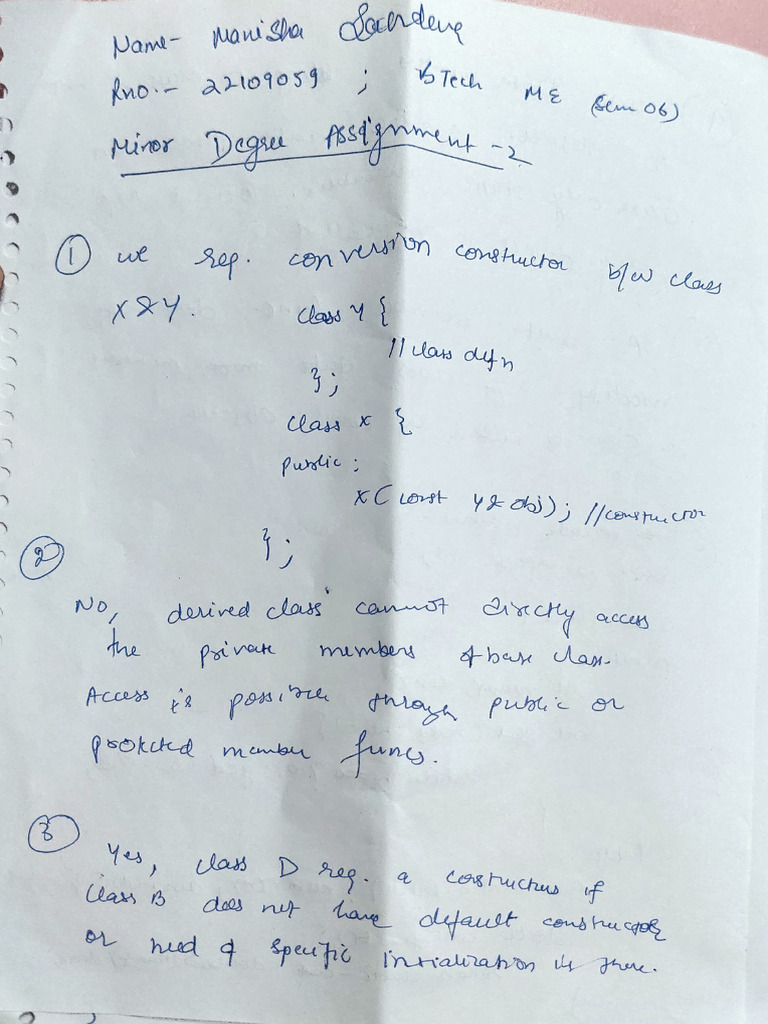 Name- Manisha Sachdeva
Rno.- 22109059 ; BTech ME (Sem 06)
Minor Degree Assignment -2
① we req. conversion constructor b/w class
X & Y. class Y {
// class defn
};
class X {
public ;
X( const Y& obj); //constructor
};
②
No, derived class cannot directly access
the private members of base class.
Access is possible through public or
protected member funcs.
③
Yes, class D req. a constructor if
class B does not have default constructor
or need of specific initialization is there.